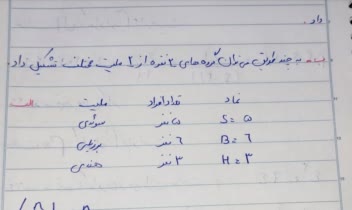 داد.
ب) به چند طریق می توان گروه های ۲ نفره از ۲ ملیت مختلف تشکیل داد
ملیت تعداد افراد نماد
سوئدی ۵ نفر S = ۵
برزیلی ۶ نفر B = ۶
هندی ۳ نفر H = ۳